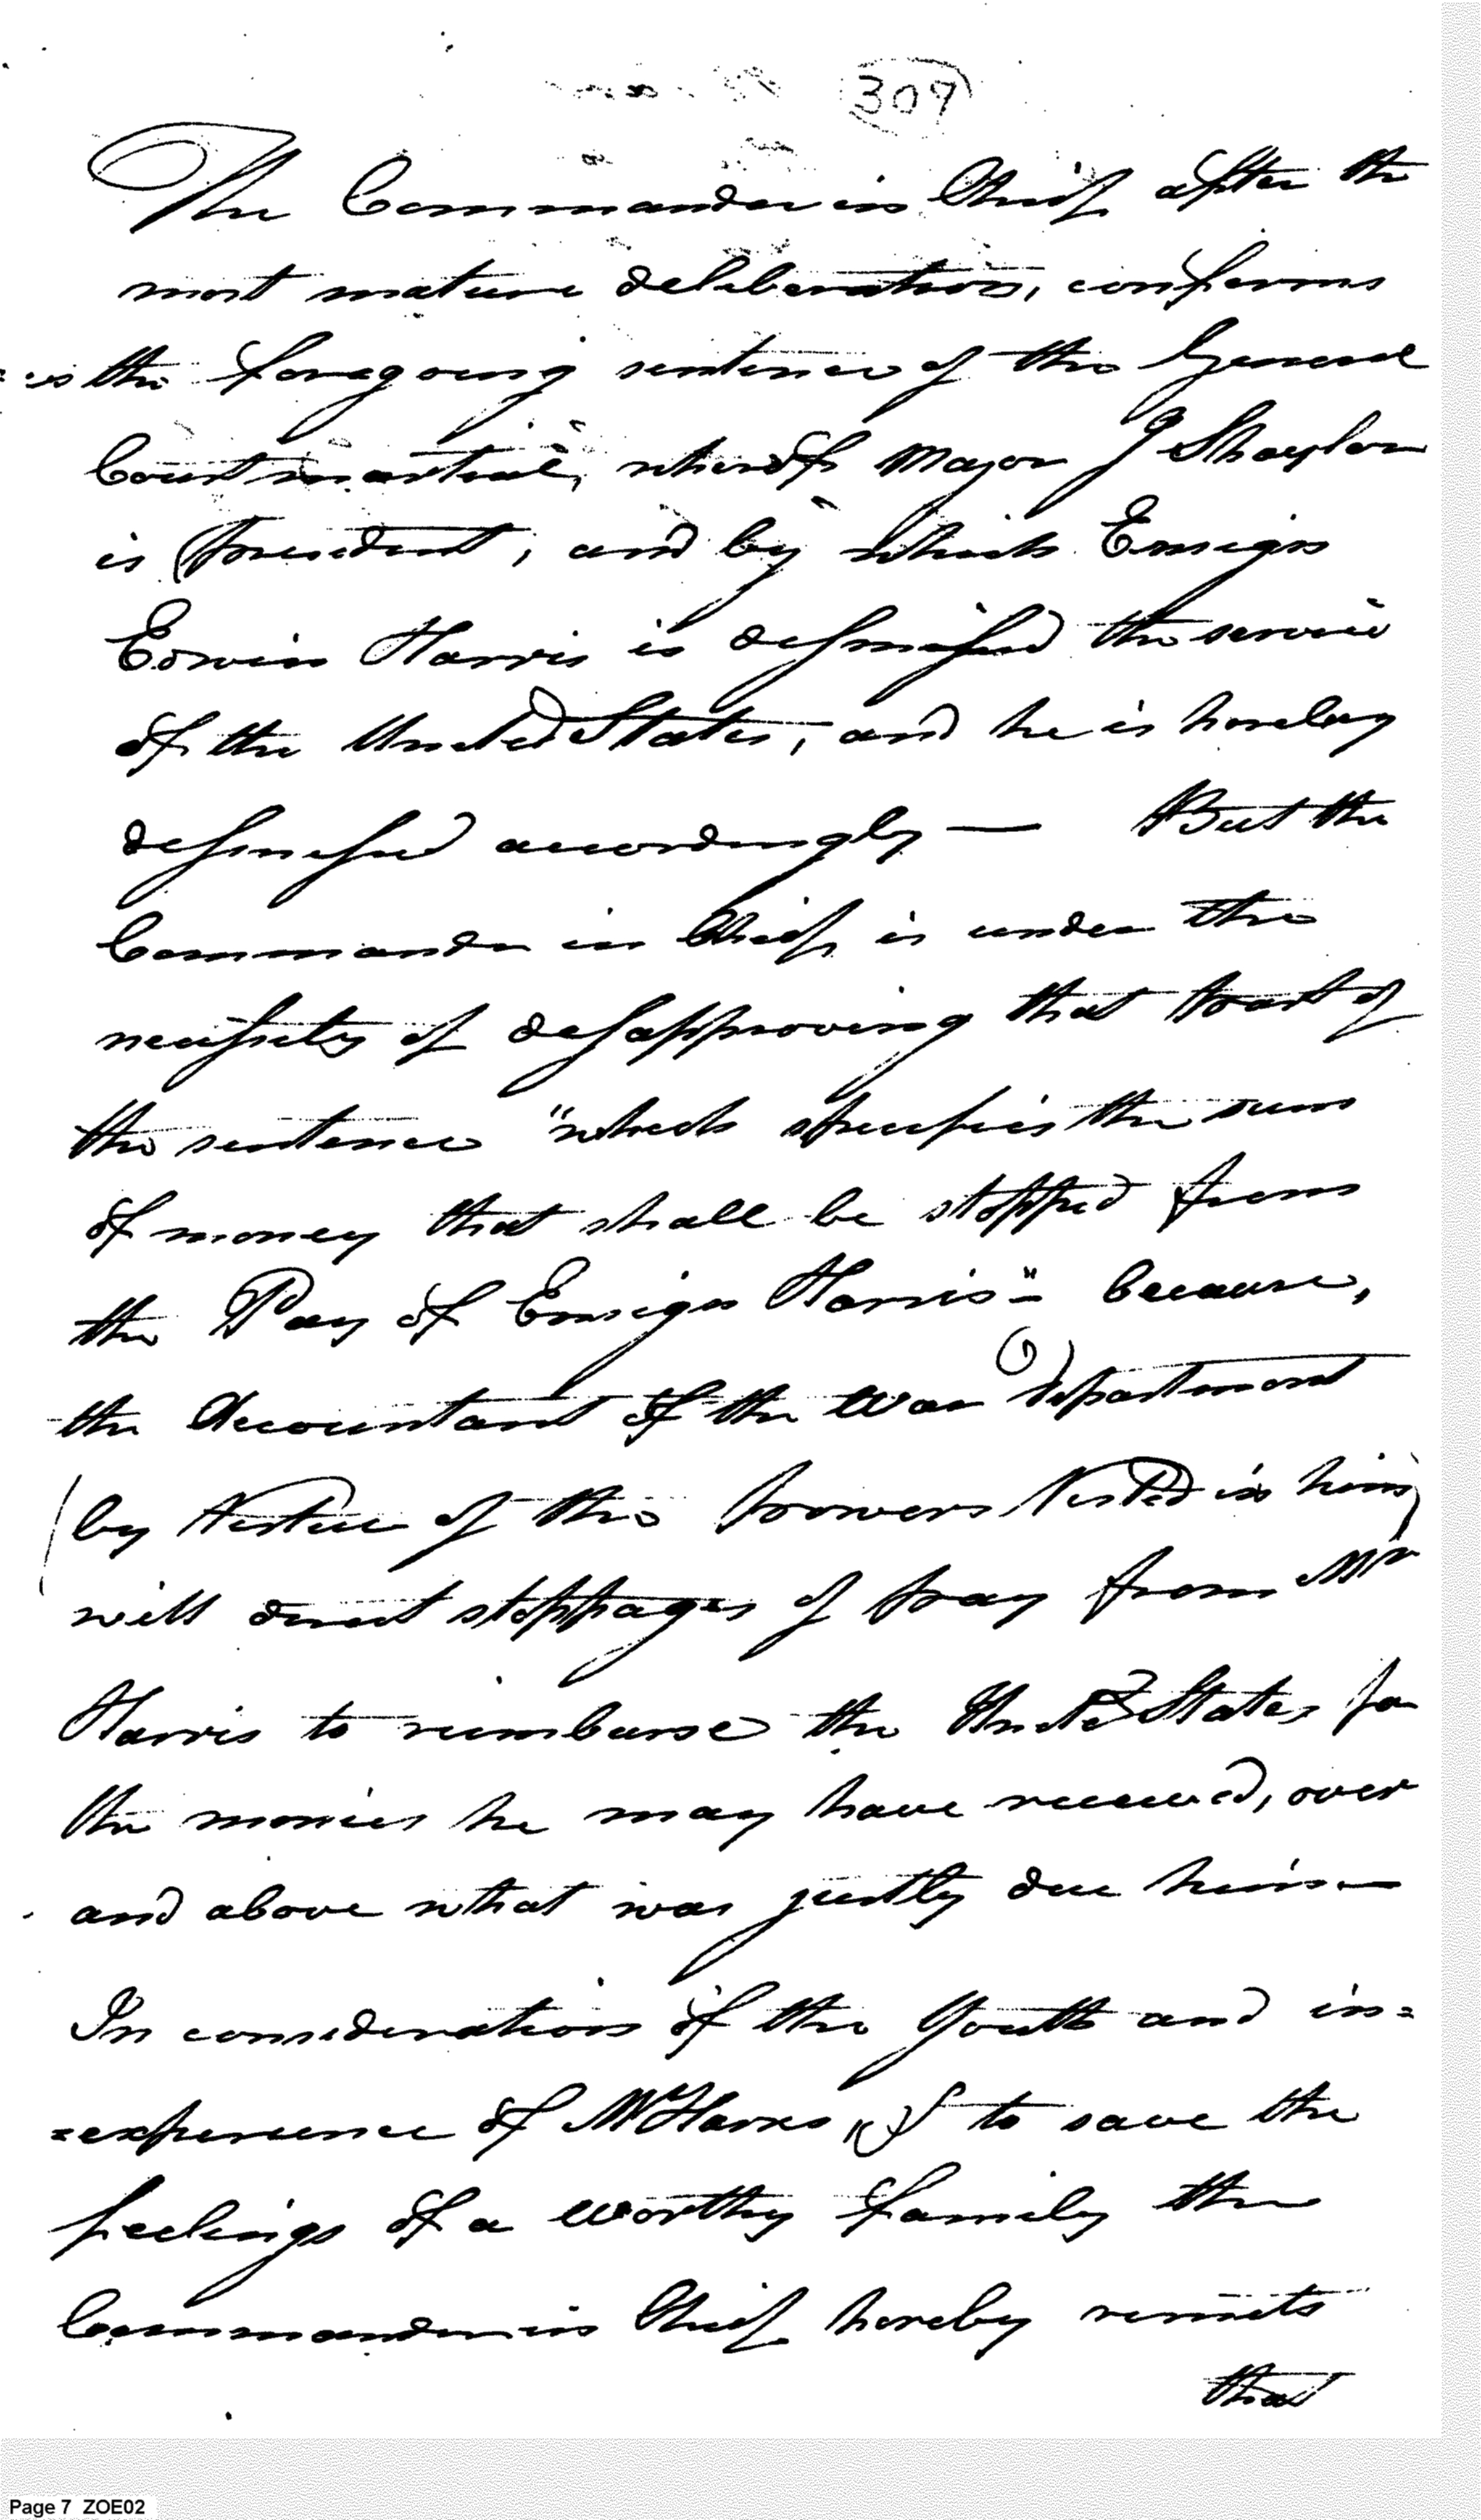 309
The Commander in Chief after the
most mature deliberation, confirms
the foregoing sentence of the General
Court martial, whereof Major J Shaylor
is President, and by which Ensign
Edwin Harris is dismissed the service
of the United States, and he is hereby
dismissed accordingly — But the
Commander in Chief is under the
necessity of disapproving that part of
the sentence "which specifies the sum
of money that shall be stopped from
the Pay of Ensign Harris"- because,
the Accountant of the War department
(by Vertue of the powers Vested in him)
will direct stoppages of pay from Mr
Harris to reimburse the United States for
the monies he may have received, over
and above what was justly due him—
In consideration of the Youth and in=
=experience of Mr Harris, & to save the
feelings of a worthy family the
Commander in Chief hereby remits
that
Page 7 ZOE02